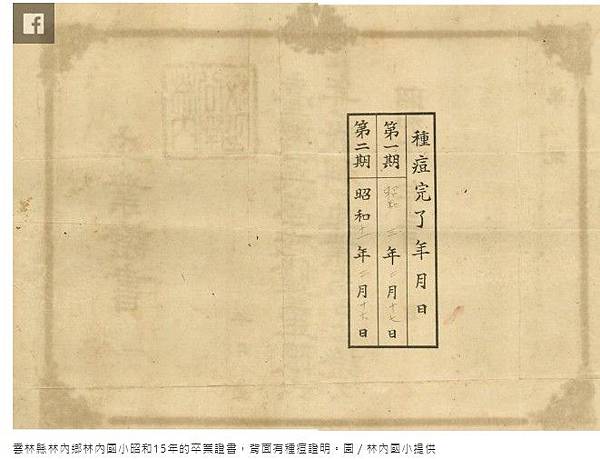 種痘完了年月日
第一期 昭和三年二月十七日
第二期 昭和十一年二月日
雲林縣林內鄉林內國小昭和15年的卒業證書，背面有種痘證明。圖／林內國小提供